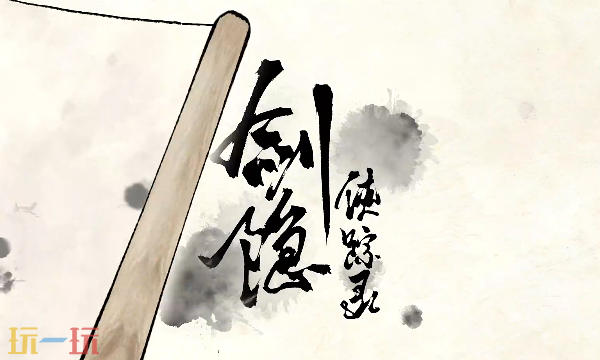 剑隐
侠踪录
玩一玩